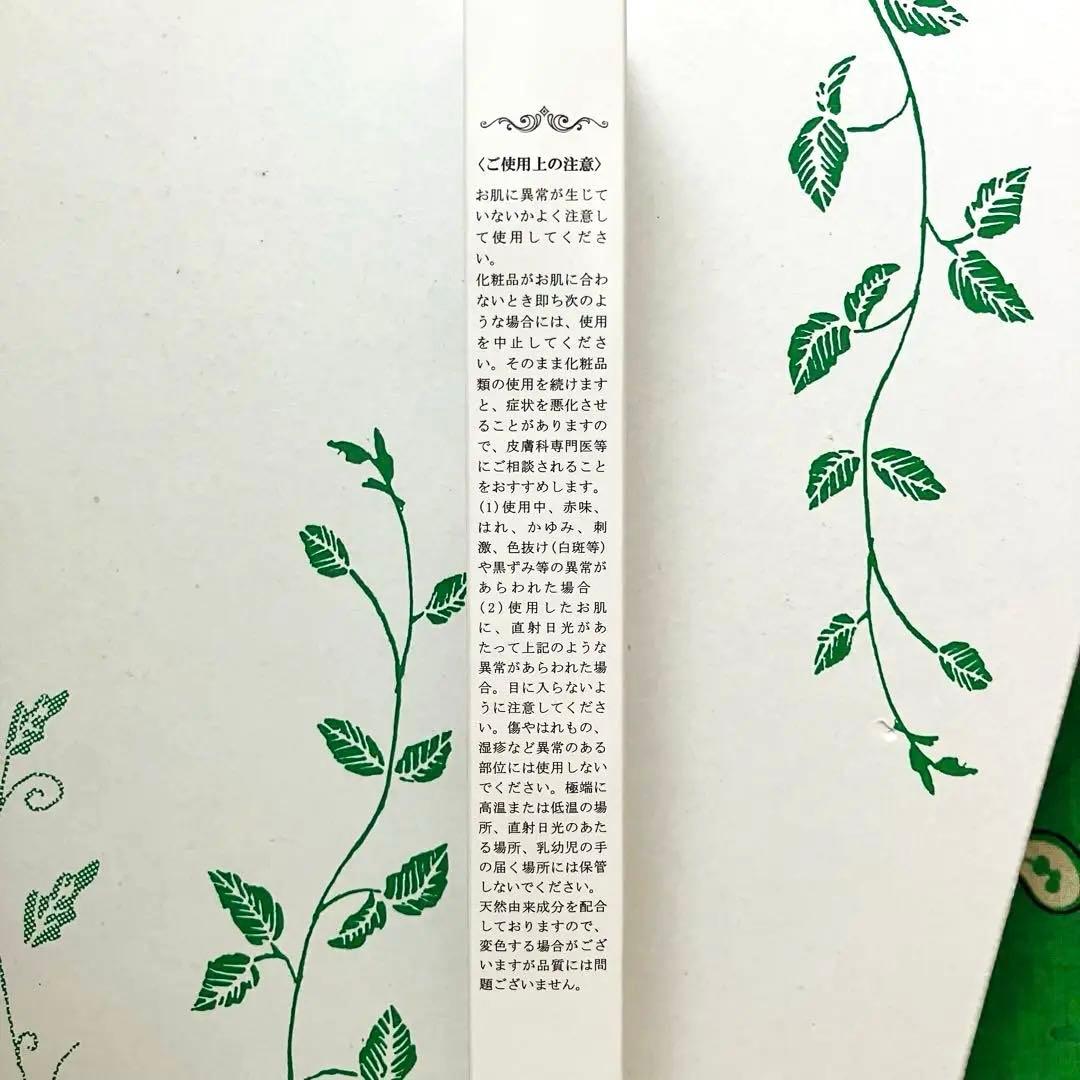 〈ご使用上の注意〉
お肌に異常が生じて
いないかよく注意し
て使用してくださ
い。
化粧品がお肌に合わ
ないとき即ち次のよ
うな場合には、使用
を中止してくださ
い。そのまま化粧品
類の使用を続けます
と、症状を悪化させ
ることがありますの
で、皮膚科専門医等
にご相談されること
をおすすめします。
(1)使用中、赤味、
はれ、かゆみ、刺
激、色抜け(白斑等)
や黒ずみ等の異常が
あらわれた場合
(2)使用したお肌
に、直射日光があ
たって上記のような
異常があらわれた場
合。目に入らないよ
うに注意してくださ
い。傷やはれもの、
湿疹など異常のある
部位には使用しない
でください。極端に
高温または低温の場
所、直射日光のあた
る場所、乳幼児の手
の届く場所には保管
しないでください。
天然由来成分を配合
しておりますので、
変色する場合がござ
いますが品質には問
題ございません。